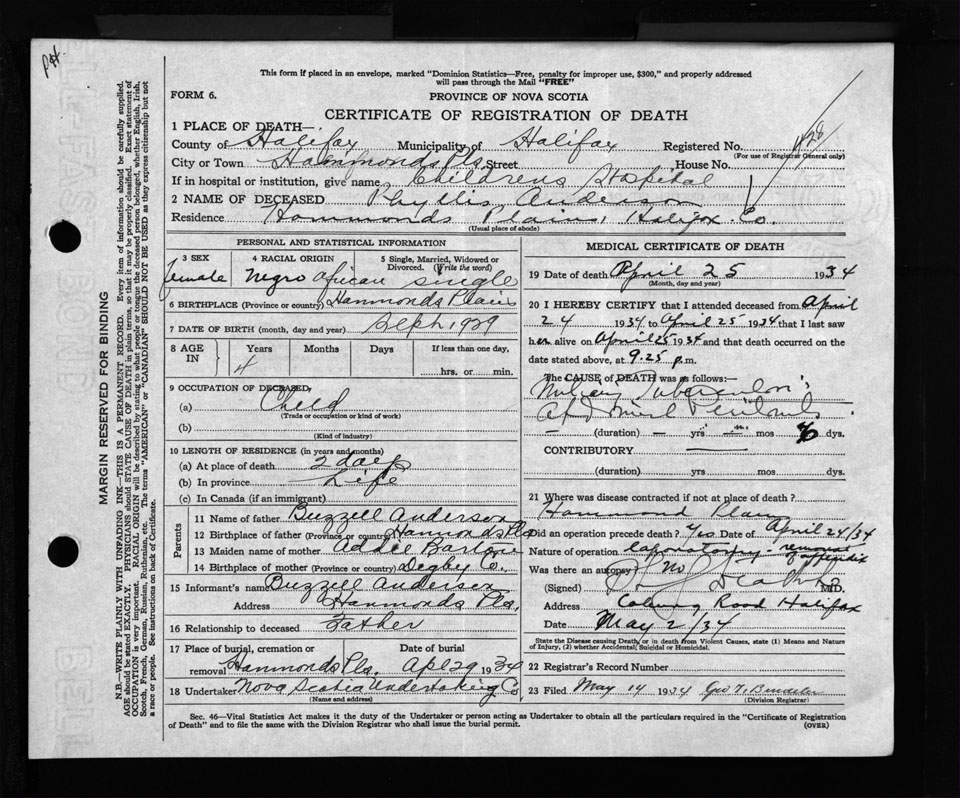 pat.
This form if placed in an envelope, marked "Dominion Statistics—Free, penalty for improper use, $300," and properly addressed
will pass through the Mail "FREE"
FORM 6.
PROVINCE OF NOVA SCOTIA
CERTIFICATE OF REGISTRATION OF DEATH
1 PLACE OF DEATH—
County of Halifax Municipality of Halifax Registered No. 428
(For use of Registrar General only)
City or Town Hammonds Pls Street House No.
If in hospital or institution, give name Childrens Hospital
2 NAME OF DECEASED Phyllis Anderson
Residence Hammonds Plains, Halifax Co.
(Usual place of abode)
PERSONAL AND STATISTICAL INFORMATION
3 SEX 4 RACIAL ORIGIN 5 Single, Married, Widowed or
Divorced. (Write the word)
female Negro African single
6 BIRTHPLACE (Province or country) Hammonds Plains
7 DATE OF BIRTH (month, day and year) Sept 1929
8 AGE IN Years Months Days If less than one day,
4 hrs. or min.
9 OCCUPATION OF DECEASED,
(a) Child
(Trade or occupation or kind of work)
(b)
(Kind of industry)
10 LENGTH OF RESIDENCE (in years and months)
(a) At place of death 2 days
(b) In province Life
(c) In Canada (if an immigrant)
Parents
11 Name of father Buzzell Anderson
12 Birthplace of father (Province or country) Hammonds Pls
13 Maiden name of mother Addie
14 Birthplace of mother (Province or country) Degby Co.
15 Informant's name Buzzell Anderson
Address Hammonds Pls.
16 Relationship to deceased Father
17 Place of burial, cremation or Date of burial
removal Hammonds Pls. Apl 29 1934
18 Undertaker Nova Scotia Undertaking Co
(Name and address)
MEDICAL CERTIFICATE OF DEATH
19 Date of death April 25 1934
(Month, day and year)
20 I HEREBY CERTIFY that I attended deceased from April
24 1934 to April 25 1934 that I last saw
her alive on April 25 1934 and that death occurred on the
date stated above, at 9.25 p.m.
The CAUSE of DEATH was as follows:—
Miliary
(duration) yrs mos dys.
CONTRIBUTORY
(duration) yrs mos dys.
21 Where was disease contracted if not at place of death?
Hammond Plains
Did an operation precede death? Yes Date of April 24/34
Nature of operation laparotomy - removal
of appendix
Was there an autopsy? No
(Signed) M.D.
Address Coburg Road Halifax
Date May 2/34
State the Disease causing Death, or in death from Violent Causes, state (1) Means and Nature
of Injury, (2) whether Accidental, Suicidal or Homicidal.
22 Registrar's Record Number
23 Filed May 14 1934 Geo
(Division Registrar)
Sec. 46—Vital Statistics Act makes it the duty of the Undertaker or person acting as Undertaker to obtain all the particulars required in the "Certificate of Registration
of Death" and to file the same with the Division Registrar who shall issue the burial permit.
(OVER)
MARGIN RESERVED FOR BINDING
N.B.—WRITE PLAINLY WITH UNFADING INK—THIS IS A PERMANENT RECORD. Every item of information should be carefully supplied.
AGE should be stated EXACTLY. PHYSICIANS should STATE CAUSE OF DEATH in plain terms, so that it may be properly classified. Exact statement of
OCCUPATION is very important. RACIAL ORIGIN will be described by stating to what people or tongue the deceased person belonged, whether English, Irish,
Scotch, French, German, Russian, Ruthenian, etc. The terms "AMERICAN" or "CANADIAN" SHOULD NOT BE USED as they express citizenship but not
a race or people. See instructions on back of Certificate.